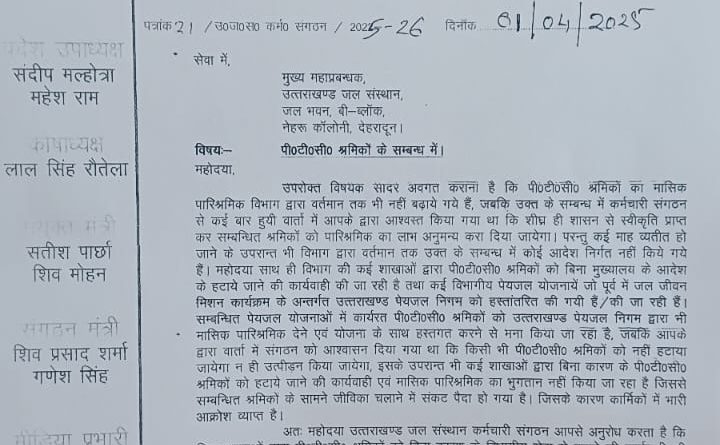 पत्रांक 21 /उ०ज०स० कर्म० संगठन / 2025-26 दिनाँक 01/04/2025
प्रदेश उपाध्यक्ष
संदीप मल्होत्रा
महेश राम
कोषाध्यक्ष
लाल सिंह रौतेला
संयुक्त मंत्री
सतीश पार्छा
शिव मोहन
संगठन मंत्री
शिव प्रसाद शर्मा
गणेश सिंह
मीडिया प्रभारी
सेवा में,
मुख्य महाप्रबन्धक,
उत्तराखण्ड जल संस्थान,
जल भवन, बी–ब्लॉक,
नेहरू कॉलोनी, देहरादून।
विषयः– पी०टी०सी० श्रमिकों के सम्बन्ध में।
महोदया,
उपरोक्त विषयक सादर अवगत कराना है कि पी०टी०सी० श्रमिकों का मासिक
पारिश्रमिक विभाग द्वारा वर्तमान तक भी नहीं बढ़ाये गये हैं, जबकि उक्त के सम्बन्ध में कर्मचारी संगठन
से कई बार हुयी वार्ता में आपके द्वारा आश्वस्त किया गया था कि शीघ्र ही शासन से स्वीकृति प्राप्त
कर सम्बन्धित श्रमिकों को पारिश्रमिक का लाभ अनुमन्य करा दिया जायेगा। परन्तु कई माह व्यतीत हो
जाने के उपरान्त भी विभाग द्वारा वर्तमान तक उक्त के सम्बन्ध में कोई आदेश निर्गत नहीं किये गये
हैं। महोदया साथ ही विभाग की कई शाखाओं द्वारा पी०टी०सी० श्रमिकों को बिना मुख्यालय के आदेश
के हटाये जाने की कार्यवाही की जा रही है तथा कई विभागीय पेयजल योजनायें जो पूर्व में जल जीवन
मिशन कार्यक्रम के अन्तर्गत उत्तराखण्ड पेयजल निगम को हस्तांतरित की गयी हैं/की जा रही हैं।
सम्बन्धित पेयजल योजनाओं में कार्यरत पी०टी०सी० श्रमिकों को उत्तराखण्ड पेयजल निगम द्वारा भी
मासिक पारिश्रमिक देने एवं योजना के साथ हस्तगत करने से मना किया जा रहा है, जबकि आपके
द्वारा वार्ता में संगठन को आश्वासन दिया गया था कि किसी भी पी०टी०सी० श्रमिकों को नहीं हटाया
जायेगा न ही उत्पीड़न किया जायेगा, इसके उपरान्त भी कई शाखाओं द्वारा बिना कारण के पी०टी०सी०
श्रमिकों को हटाये जाने की कार्यवाही एवं मासिक पारिश्रमिक का भुगतान नहीं किया जा रहा है जिससे
सम्बन्धित श्रमिको के सामने जीविका चलाने में संकट पैदा हो गया है। जिसके कारण कार्मिकों में भारी
आक्रोश व्याप्त है।
अतः महोदया उत्तराखण्ड जल संस्थान कर्मचारी संगठन आपसे अनुरोध करता है कि